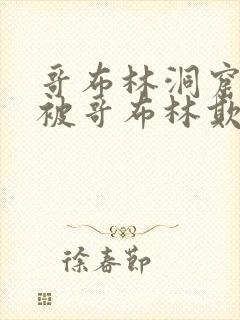 哥布林洞窟
被哥布林欺
徐春节